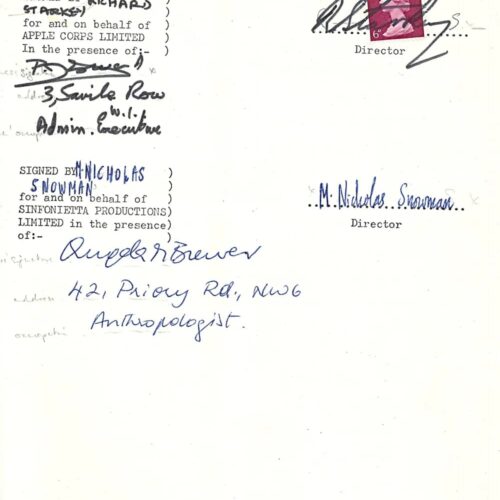 RICHARD
STARKEY )
for and on behalf of )
APPLE CORPS LIMITED )
In the presence of:- )
R Starkey S.
6
Director
3, Savile Row
W.1.
Admin. Executive
SIGNED BY M. NICHOLAS )
SNOWMAN )
for and on behalf of )
SINFONIETTA PRODUCTIONS)
LIMITED in the presence)
of:- )
M. Nicholas Snowman
Director
Brewer
42, Priory Rd., NW6
Anthropologist.